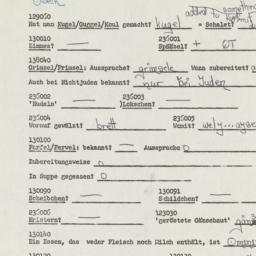 added to something
129060
Hat man Kugel/Gungel/Koul gemacht? kugel = Schalet?
130010 235001
Zimmes? — Spänzel? + GT
138040
Grimsel/Frimsel: Aussprache? grimsele Wann zubereitet?
Auch bei Nichtjuden bekannt? nur bei Juden
235002 235003
'Nudeln' — )Lokschen? —
235004 235005
Worauf gewälzt? brett Womit?
130100
Farfel/Fervel: bekannt? — Aussprache 0
Zubereitungsweise 0
In Suppe gegessen? 0
130090 130091
Scheibchen? — Schildchen? —
235006 123030
Kristern? — 'geröstete Gänsehaut'
130140
Ein Essen, das weder Fleisch noch Milch enthält, ist